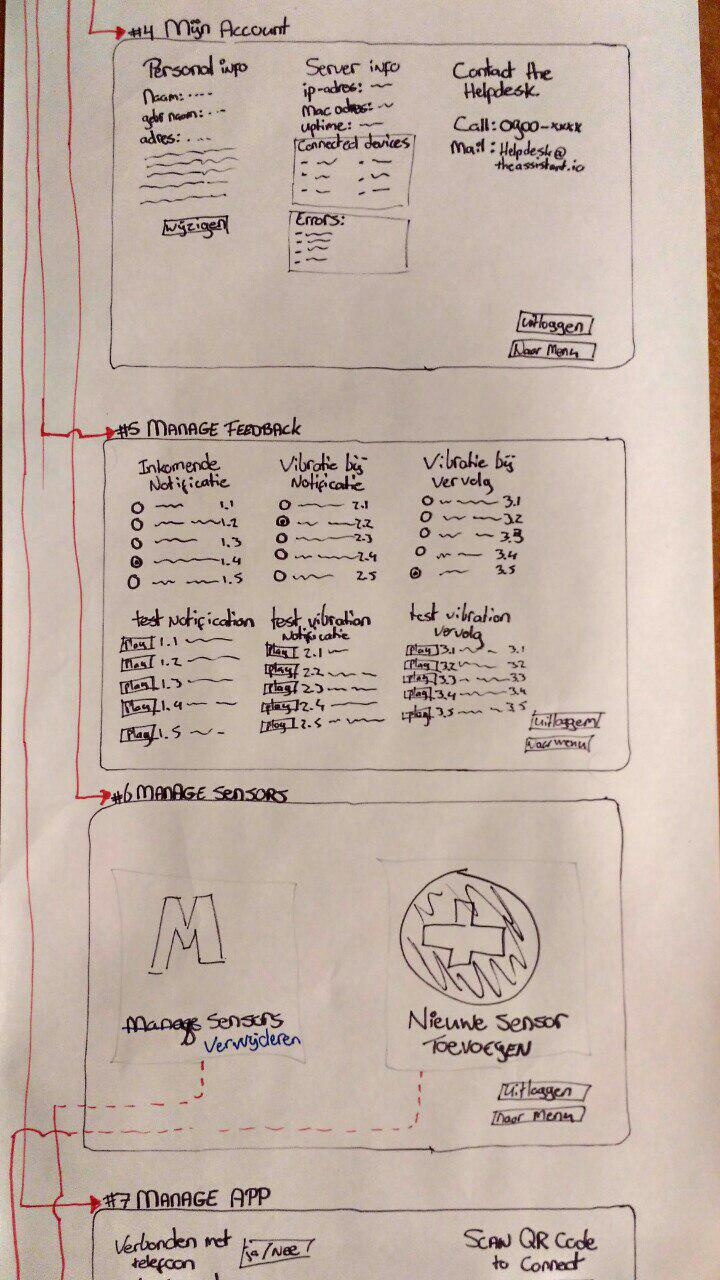 #4 Mijn Account
Personal info
Naam: ....
gebr naam: ...
adres: ....
Wijzigen
Server info
ip-adres:
Mac adres:
uptime:
Connected devices
Errors:
Contact the
Helpdesk
Call: 0900-xxxx
Mail: Helpdesk@
theassistant.io
Uitloggen
Naar Menu
#5 MANAGE FEEDBACK
Inkomende
Notificatie
1.1
1.2
1.3
1.4
1.5
Vibratie bij
Notificatie
2.1
2.2
2.3
2.4
2.5
Vibratie bij
vervolg
3.1
3.2
3.3
3.4
3.5
test Notification
Play 1.1
Play 1.2
Play 1.3
Play 1.4
Play 1.5
test vibration
Notificatie
Play 2.1
Play 2.2
Play 2.3
Play 2.4
Play 2.5
test vibration
vervolg
Play 3.1 3.1
Play 3.2 3.2
Play 3.3 3.3
Play 3.4 3.4
Play 3.5 3.5
Uitloggen
Naar menu
#6 MANAGE SENSORS
M
Manage Sensors
Verwijderen
Nieuwe Sensor
TOEVOEGEN
Uitloggen
Naar Menu
#7 MANAGE APP
Verbonden met
telefoon
ja/Nee
SCAN QR Code
to Connect